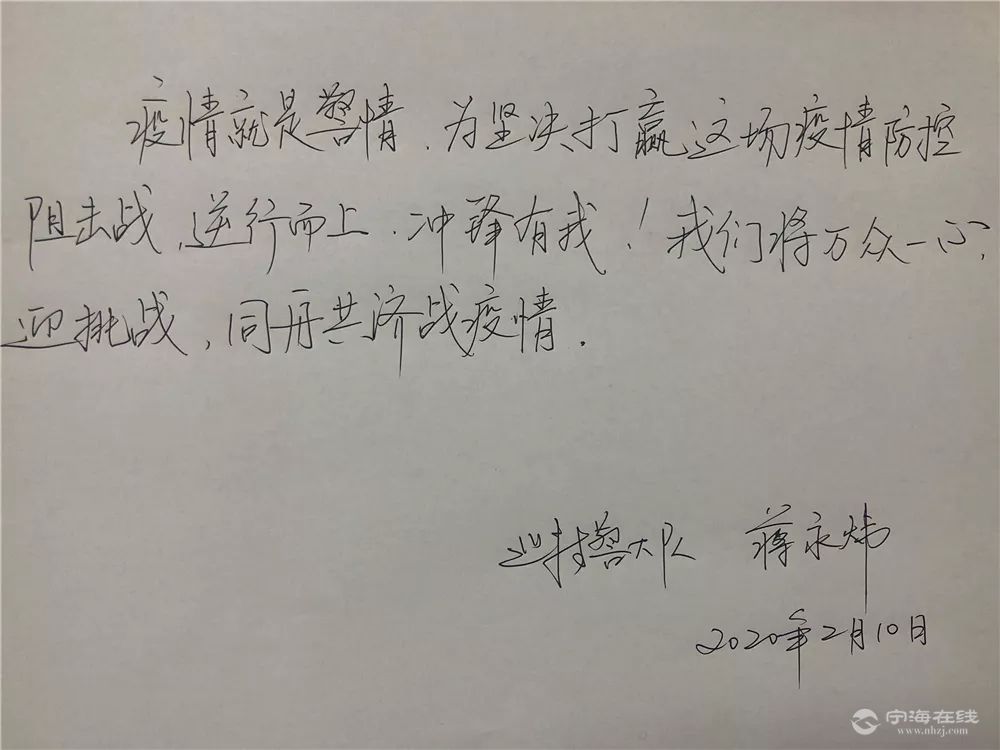 疫情就是警情,为坚决打赢这场疫情防控
阻击战,逆行而上,冲锋有我!我们将万众一心,
迎挑战,同舟共济战疫情.
巡特警大队 蒋永炜
2020年2月10日
宁海在线
www.nhzj.com